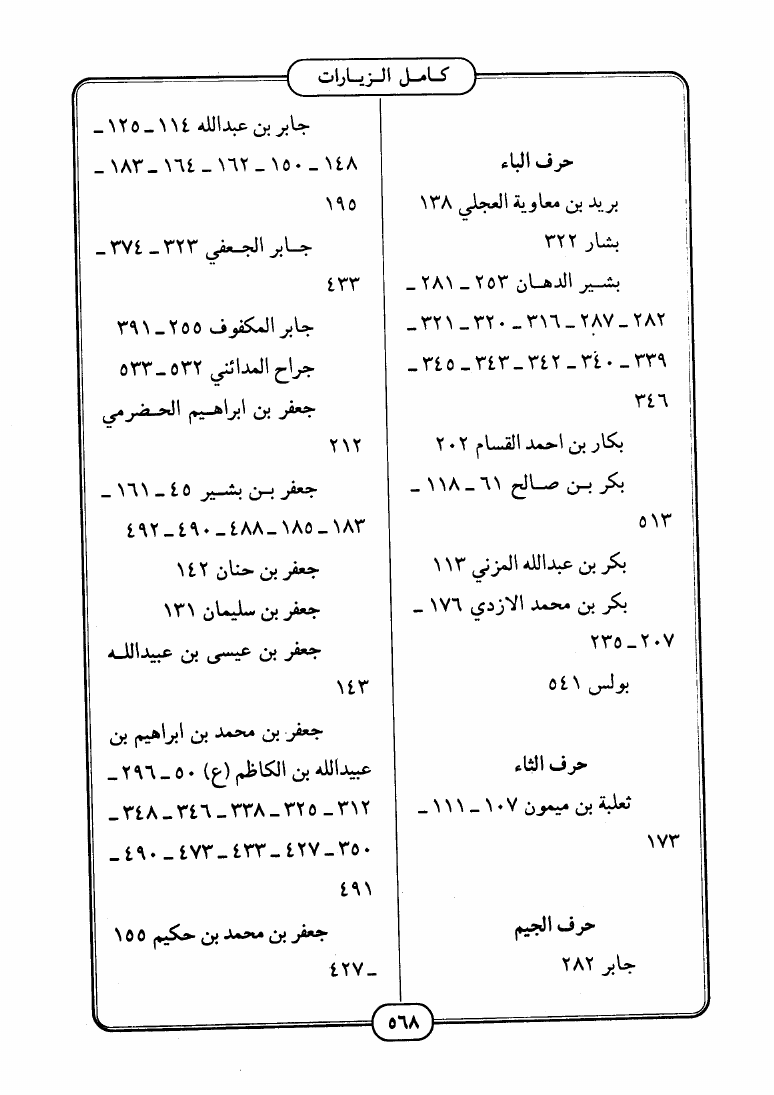 كامل الزيارات
حرف الباء
بريد بن معاوية العجلي ١٣٨
بشار ٣٢٢
بشير الدهان ٢٥٣ ـ ٢٨١ ـ
٢٨٢ ـ ٢٨٧ ـ ٣١٦ ـ ٣٢٠ ـ ٣٢١ ـ
٣٣٩ ـ ٣٤٠ ـ ٣٤٢ ـ ٣٤٣ ـ ٣٤٥ ـ
٣٤٦
بكار بن احمد القسام ٢٠٢
بكر بن صالح ٦١ ـ ١١٨ ـ
٥١٣
بكر بن عبدالله المزني ١١٣
بكر بن محمد الازدي ١٧٦ ـ
٢٠٧ ـ ٢٣٥
بولس ٥٤١
حرف الثاء
ثعلبة بن ميمون ١٠٧ ـ ١١١ ـ
١٧٣
حرف الجيم
جابر ٢٨٢
جابر بن عبدالله ١١٤ ـ ١٢٥ ـ
١٤٨ ـ ١٥٠ ـ ١٦٢ ـ ١٦٤ ـ ١٨٣ ـ
١٩٥
جابر الجعفي ٣٢٣ ـ ٣٧٤ ـ
٤٣٣
جابر المكفوف ٢٥٥ ـ ٣٩١
جراح المدائني ٥٣٢ ـ ٥٣٣
جعفر بن ابراهيم الحضرمي
٢١٢
جعفر بن بشير ٤٥ ـ ١٦١ ـ
١٨٣ ـ ١٨٥ ـ ٤٨٨ ـ ٤٩٠ ـ ٤٩٢
جعفر بن حنان ١٤٢
جعفر بن سليمان ١٣١
جعفر بن عيسى بن عبيدالله
١٤٣
جعفر بن محمد بن ابراهيم بن
عبيدالله بن الكاظم (ع) ٥٠ ـ ٢٩٦ ـ
٣١٢ ـ ٣٢٥ ـ ٣٣٨ ـ ٣٤٦ ـ ٣٤٨ ـ
٣٥٠ ـ ٤٢٧ ـ ٤٣٣ ـ ٤٧٣ ـ ٤٩٠ ـ
٤٩١
جعفر بن محمد بن حكيم ١٥٥
ـ ٤٢٧
٥٦٨